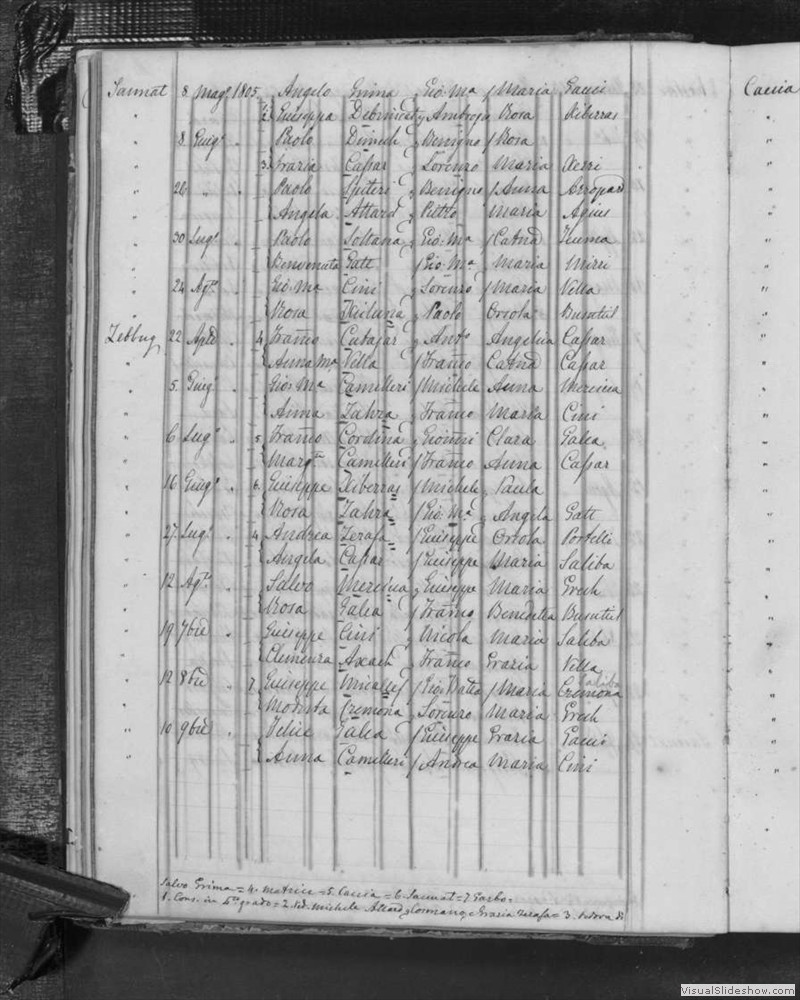 Sannat 8 Magº 1805 Angelo Grima Gio: Mª Maria Gauci Caccia
2. Giuseppa Ambrogio Rosa Xiberras
8 Giugº Paolo Dimech Benigno Rosa
3. Grazia Cassar Lorenzo Maria
26 " Paolo Spiteri Benigno Anna
Angela Attard Pietro Maria Agius
30 Lugº Paolo Soltana Gio: Mª Catnª
Benvenuta Gatt Gio: Mª Maria
24 Agº Gio: Mª Cini Lorenzo Maria Vella
Rosa Xiluna Paolo Orsola Busuttil
Zebbug 22 Aple 4. Franco Cutajar Antº Angelica Cassar
Anna Mª Vella Franco Catnª Cassar
5. Giugº Gio: Mª Camilleri Michele Anna Mercieca
Anna Zahra Franco Maria Cini
6 Lugº 5. Franco Cordina Gionni Clara Galea
Margª Camilleri Franco Anna Cassar
16 Giugº 6. Giuseppe Xiberras Michele Paula
Rosa Zahra Gio: Mª Angela Gatt
27 Lugº 4 Andrea Zerafa Giuseppe Orsola Portelli
Angela Cassar Giuseppe Maria Saliba
12 Agº Salvo Mercieca Giuseppe Maria Grech
Rosa Galea Franco Benedetta Busuttil
19 7bre Giuseppe Cini Nicola Maria Saliba
Clemenza Axach Franco Grazia Vella
Saliba
12 8bre 7. Giuseppe Micallef Gio: Batta Maria Cremona
Modesta Cremona Lorenzo Maria Grech
10 9bre Felice Galea Giuseppe Grazia Gauci
Anna Camilleri Andrea Maria Cini
Salvo Grima = 4. Matrice = 5. Caccia = 6. Sannat = 7 Garbo.
1. Cons. in 4to grado = 2. Ved. Michele Attard, e Grazia Zerafa = 3. Vedova di
VisualSlideshow.com